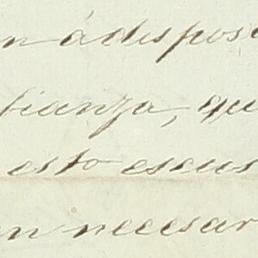 n á dispos
fianza, qu
esto escus
n necesar